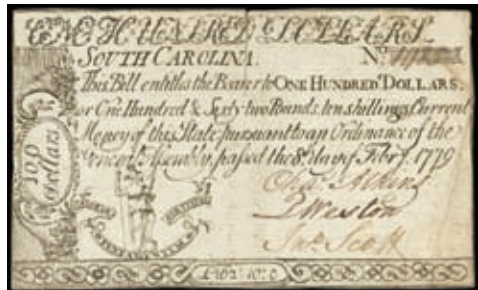 ONE HUNDRED DOLLARS.
SOUTH CAROLINA. No.
This Bill entitles the Bearer to ONE HUNDRED DOLLARS;
or One Hundred & Sixty two Pounds, ten shillings, Current
Money of this State pursuant to an Ordinance of the
General Assembly, passed the 8th. day of Febry. 1779
100 Dollars
Chas. Atkins
P Weston
Jno. Scott
£162:10:0